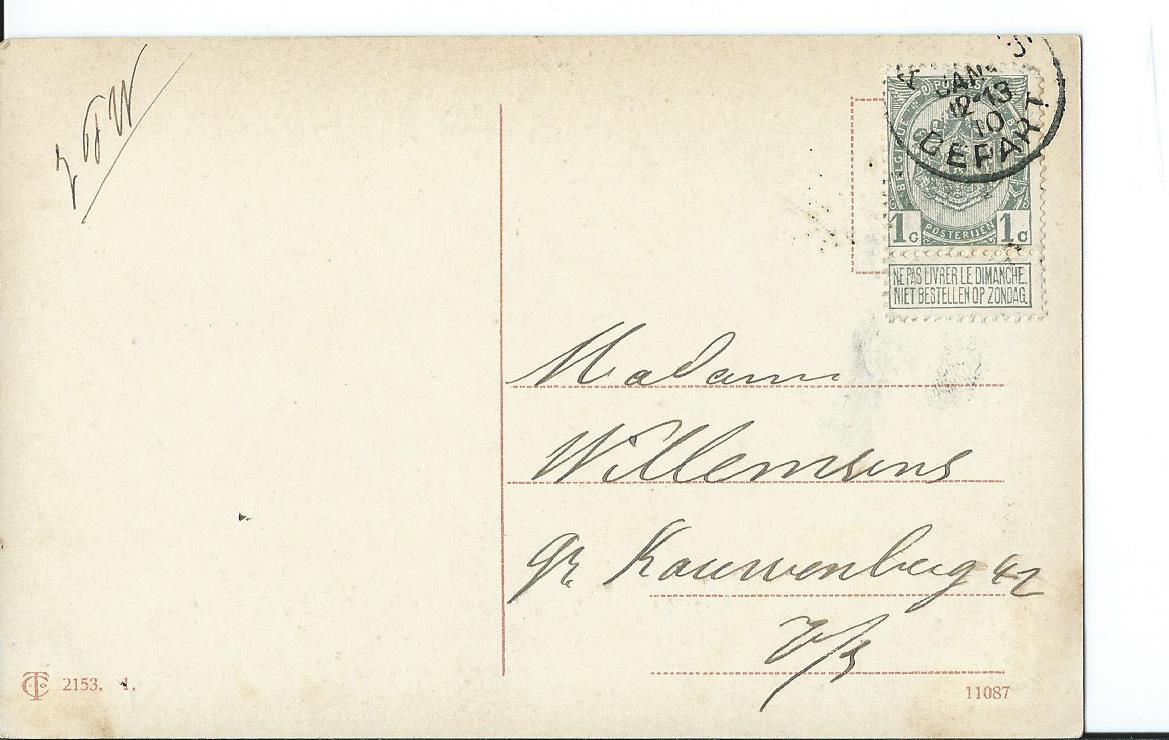 JAN
12-13
10
DEPART
BELGIQUE
1c 1c
POSTERIJEN
NE PAS LIVRER LE DIMANCHE.
NIET BESTELLEN OP ZONDAG.
Madame
Willemsens
gr. Kauwenberg 42
2153. 1.
11087